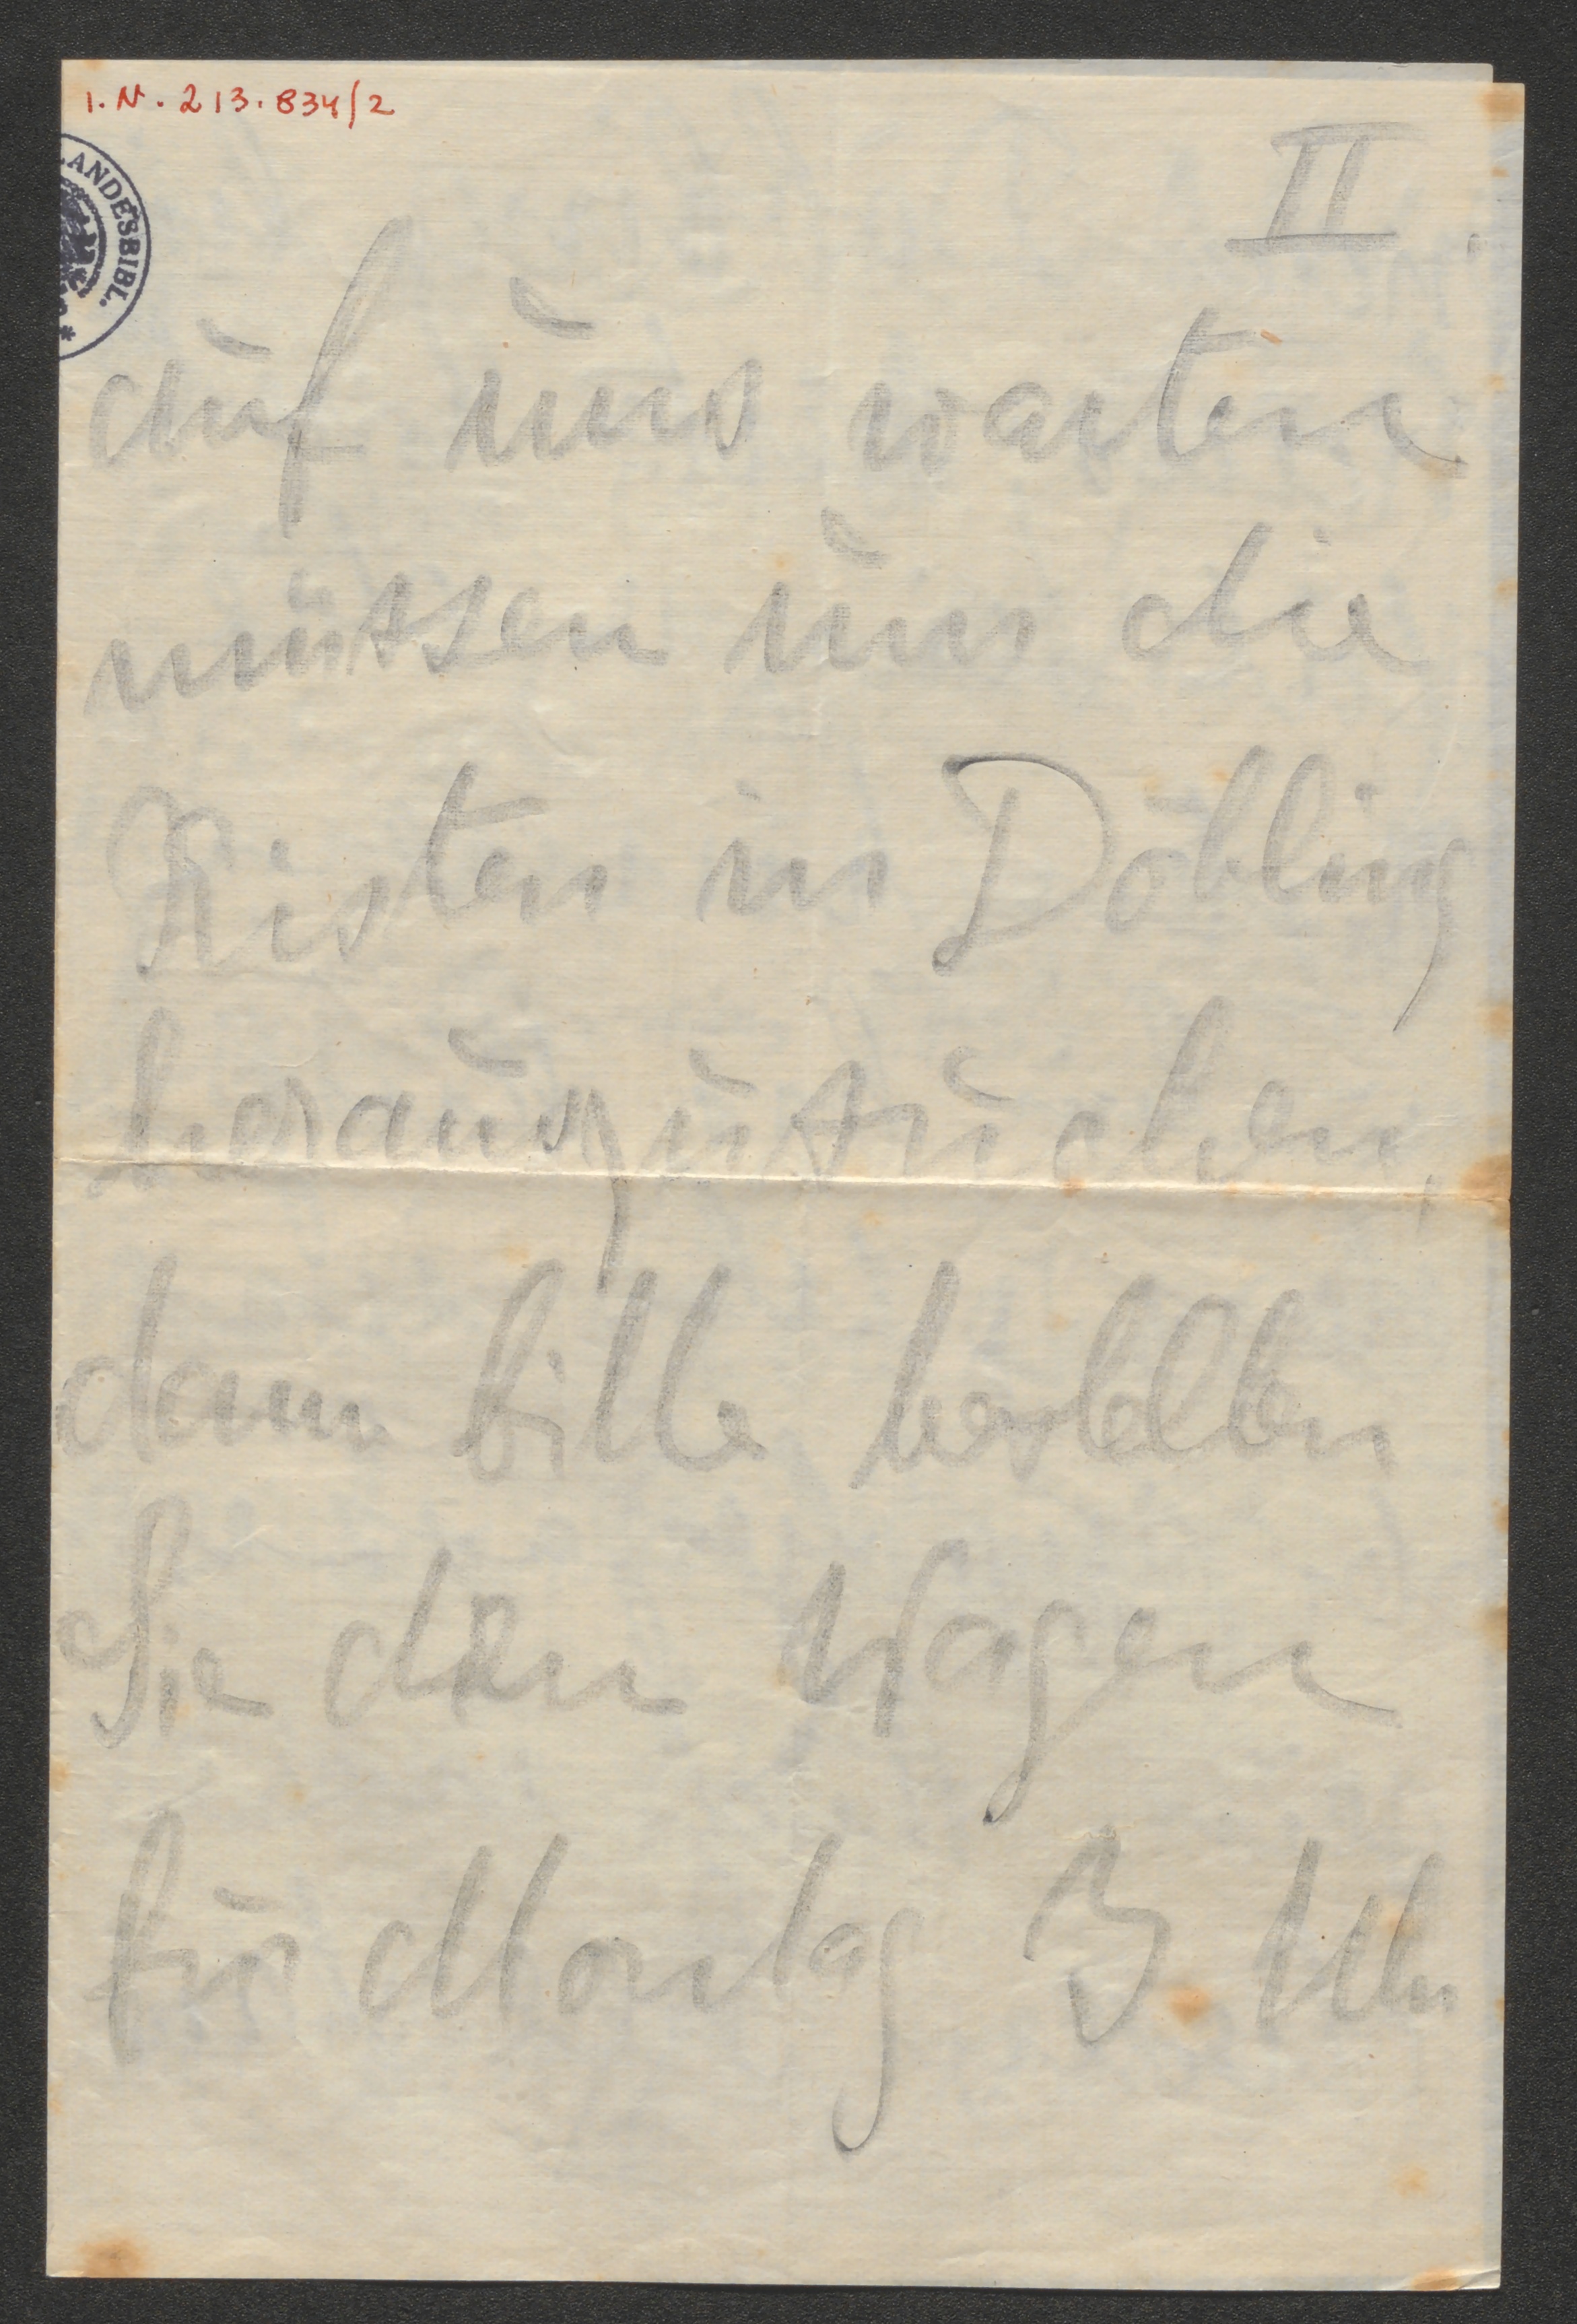 I.N. 213.834/2
LANDESBIBL.
II.
auf uns warten
müssen um die
Kisten in Döbling
herauszusuchen,
dann bitte bestellen
Sie den Wagen
für Montag 3 Uhr